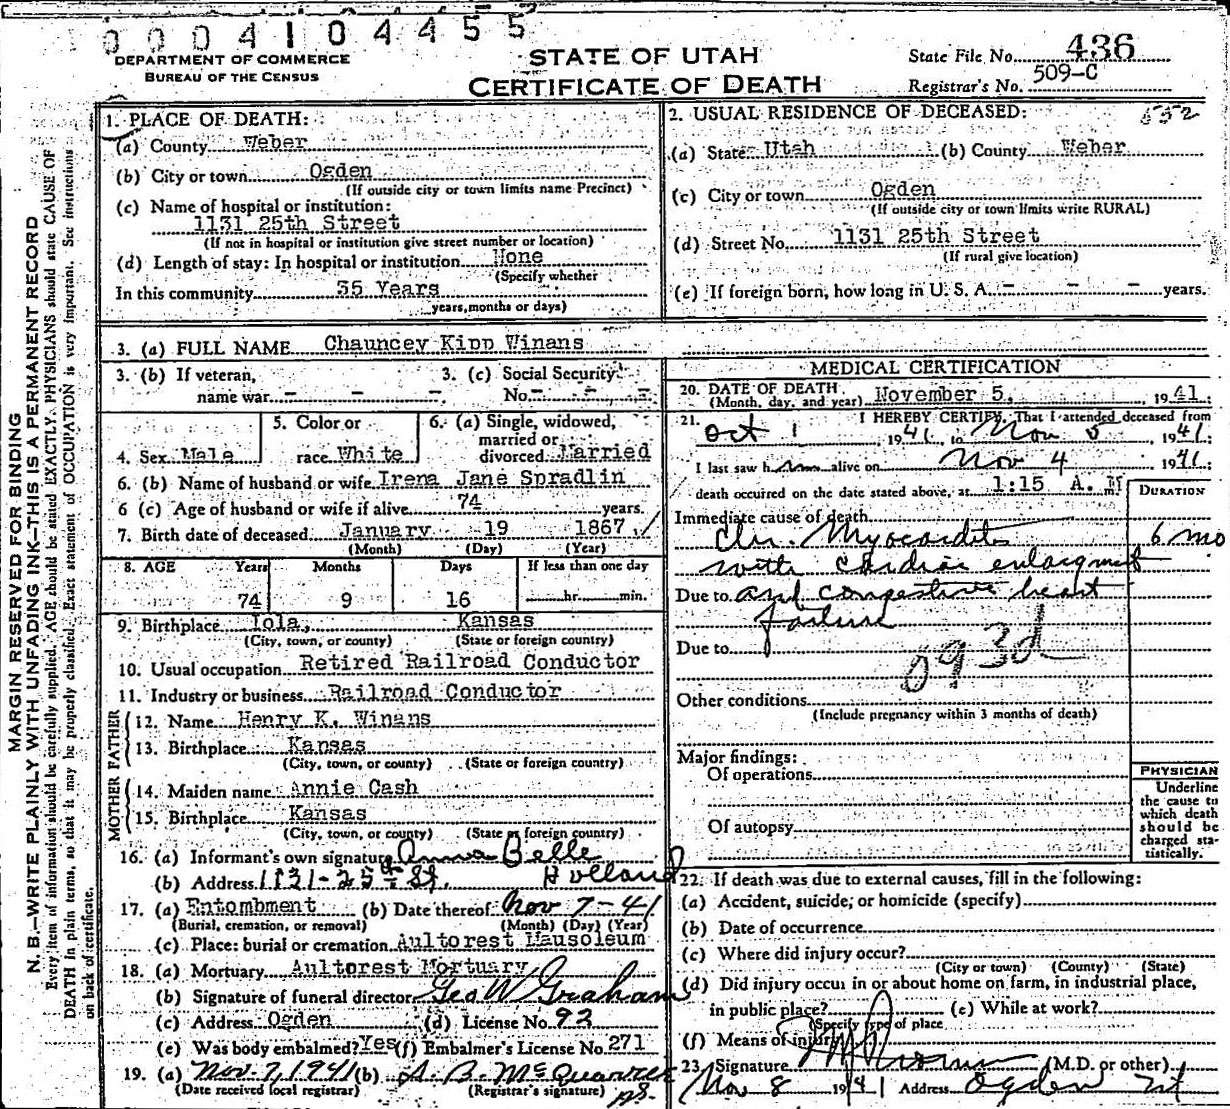 0004104455
DEPARTMENT OF COMMERCE
BUREAU OF THE CENSUS
STATE OF UTAH
CERTIFICATE OF DEATH
State File No. 436
Registrar's No. 509-C
MARGIN RESERVED FOR BINDING
N. B.—WRITE PLAINLY WITH UNFADING INK—THIS IS A PERMANENT RECORD
Every item of information should be carefully supplied. AGE should be stated EXACTLY. PHYSICIANS should state CAUSE OF
DEATH in plain terms, so that it may be properly classified. Exact statement of OCCUPATION is very important. See instructions
on back of certificate.
1. PLACE OF DEATH:
(a) County Weber
(b) City or town Ogden
(If outside city or town limits name Precinct)
(c) Name of hospital or institution:
1131 25th Street
(If not in hospital or institution give street number or location)
(d) Length of stay: In hospital or institution None
(Specify whether
In this community 35 Years
years, months or days)
2. USUAL RESIDENCE OF DECEASED:
(a) State Utah (b) County Weber
(c) City or town Ogden
(If outside city or town limits write RURAL)
(d) Street No. 1131 25th Street
(If rural give location)
(e) If foreign born, how long in U. S. A. - - - years.
3. (a) FULL NAME Chauncey Kipp Winans
3. (b) If veteran, 3. (c) Social Security
name war - - - No. - - -
4. Sex Male
5. Color or
race White
6. (a) Single, widowed,
married or
divorced Married
6. (b) Name of husband or wife Irena Jane Spradlin
6 (c) Age of husband or wife if alive 74 years.
7. Birth date of deceased January 19 1867
(Month) (Day) (Year)
8. AGE Years Months Days If less than one day
74 9 16 hr. min.
9. Birthplace Iola, Kansas
(City, town, or county) (State or foreign country)
10. Usual occupation Retired Railroad Conductor
11. Industry or business Railroad Conductor
FATHER
12. Name Henry K. Winans
13. Birthplace Kansas
(City, town, or county) (State or foreign country)
MOTHER
14. Maiden name Annie Cash
15. Birthplace Kansas
(City, town, or county) (State or foreign country)
16. (a) Informant's own signature Anna Belle Holland
(b) Address 1131-25th St.
17. (a) Entombment (b) Date thereof Nov 7-41
(Burial, cremation, or removal) (Month) (Day) (Year)
(c) Place: burial or cremation Aultorest Mausoleum
18. (a) Mortuary Aultorest Mortuary
(b) Signature of funeral director Geo W Graham
(c) Address Ogden (d) License No. 92
(e) Was body embalmed? Yes (f) Embalmer's License No. 271
19. (a) Nov. 7, 1941 (b) A. B. McQuarrie
(Date received local registrar) (Registrar's signature)
MEDICAL CERTIFICATION
20. DATE OF DEATH
(Month, day, and year) November 5, 1941.
21. I HEREBY CERTIFY, That I attended deceased from
Oct 1, 1941, to Nov 5, 1941
I last saw him alive on Nov 4 1941
death occurred on the date stated above, at 1:15 A. M
DURATION
Immediate cause of death
Chr. Myocarditis 6 mo
with cardiac enlargment
Due to and congestive heart
failure
Due to
093d
Other conditions
(Include pregnancy within 3 months of death)
Major findings:
Of operations
Of autopsy
PHYSICIAN
Underline
the cause to
which death
should be
charged sta-
tistically.
22. If death was due to external causes, fill in the following:
(a) Accident, suicide, or homicide (specify)
(b) Date of occurrence
(c) Where did injury occur?
(City or town) (County) (State)
(d) Did injury occur in or about home on farm, in industrial place,
in public place? (e) While at work?
(Specify type of place
(f) Means of injury
23. Signature (M.D. or other)
Nov 8 1941 Address Ogden Ut